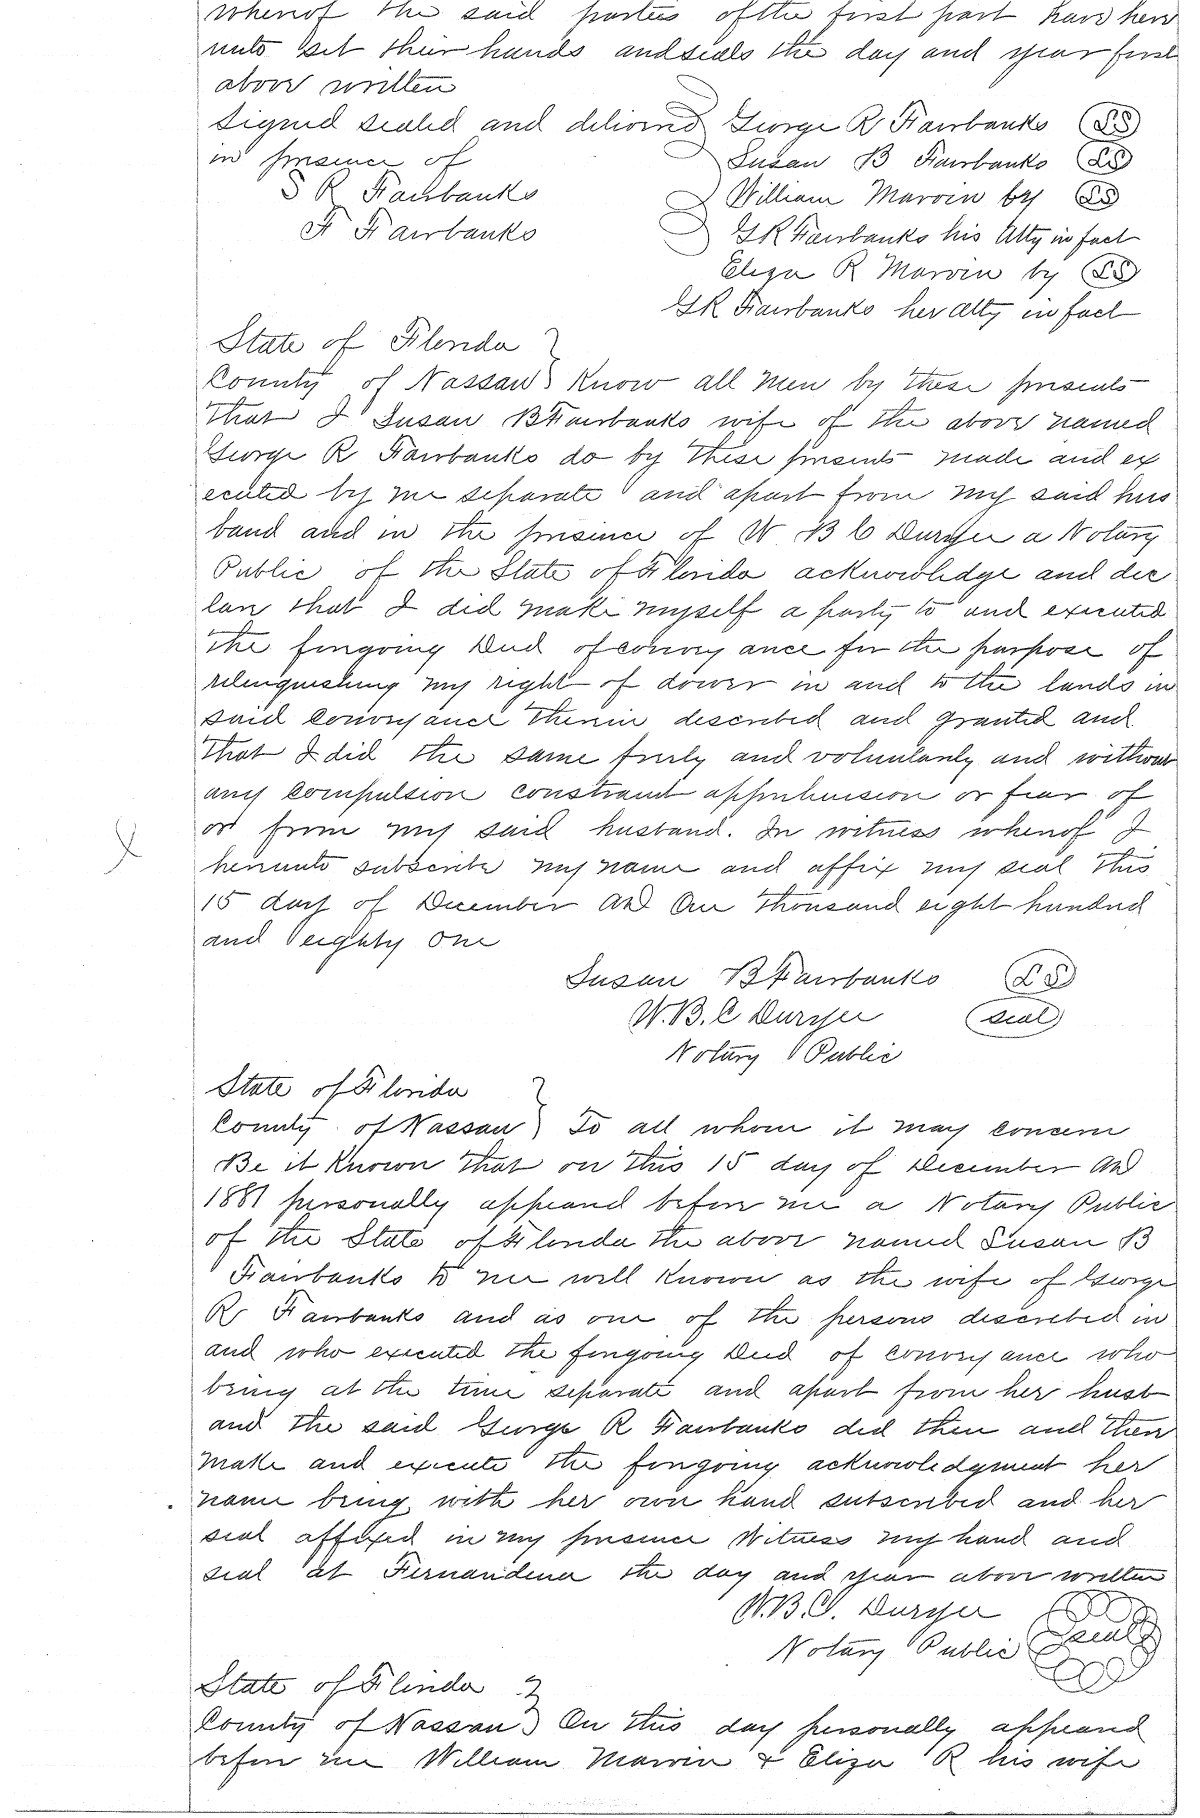 whereof the said parties of the first part have here
unto set their hands and seals the day and year first
above written
Signed sealed and delivered George R Fairbanks LS
in presence of Susan B Fairbanks LS
S R Fairbanks William Marvin by LS
F Fairbanks G R Fairbanks his Atty in fact
Eliza R Marvin by LS
G R Fairbanks her Atty in fact
State of Florida
County of Nassau Know all men by these presents
that I Susan B Fairbanks wife of the above named
George R Fairbanks do by these presents made and ex
ecuted by me separate and apart from my said hus
band and in the presence of W B C Duryee a Notary
Public of the State of Florida acknowledge and dec
lare that I did make myself a party to and executed
the foregoing Deed of convey ance for the purpose of
relinquishing my right of dower in and to the lands in
said conveyance therein described and granted and
that I did the same freely and voluntarily and without
any compulsion constraint apprehension or fear of
or from my said husband. In witness whereof I
hereunto subscribe my name and affix my seal this
15 day of December AD One thousand eight hundred
and eighty one
Susan B Fairbanks LS
W.B.C Duryee seal
Notary Public
State of Florida
County of Nassau To all whom it may concern
Be it Known that on this 15 day of December AD
1881 personally appeared before me a Notary Public
of the State of Florida the above named Susan B
Fairbanks to me well known as the wife of George
R Fairbanks and as one of the persons described in
and who executed the foregoing Deed of convey ance who
being at the time separate and apart from her husb
and the said George R Fairbanks did then and there
make and execute the foregoing acknowledgment her
name being with her own hand subscribed and her
seal affixed in my presence Witness my hand and
seal at Fernandina the day and year above written
W.B.C. Duryee
Notary Public seal
State of Florida
County of Nassau On this day personally appeared
before me William Marvin & Eliza R his wife